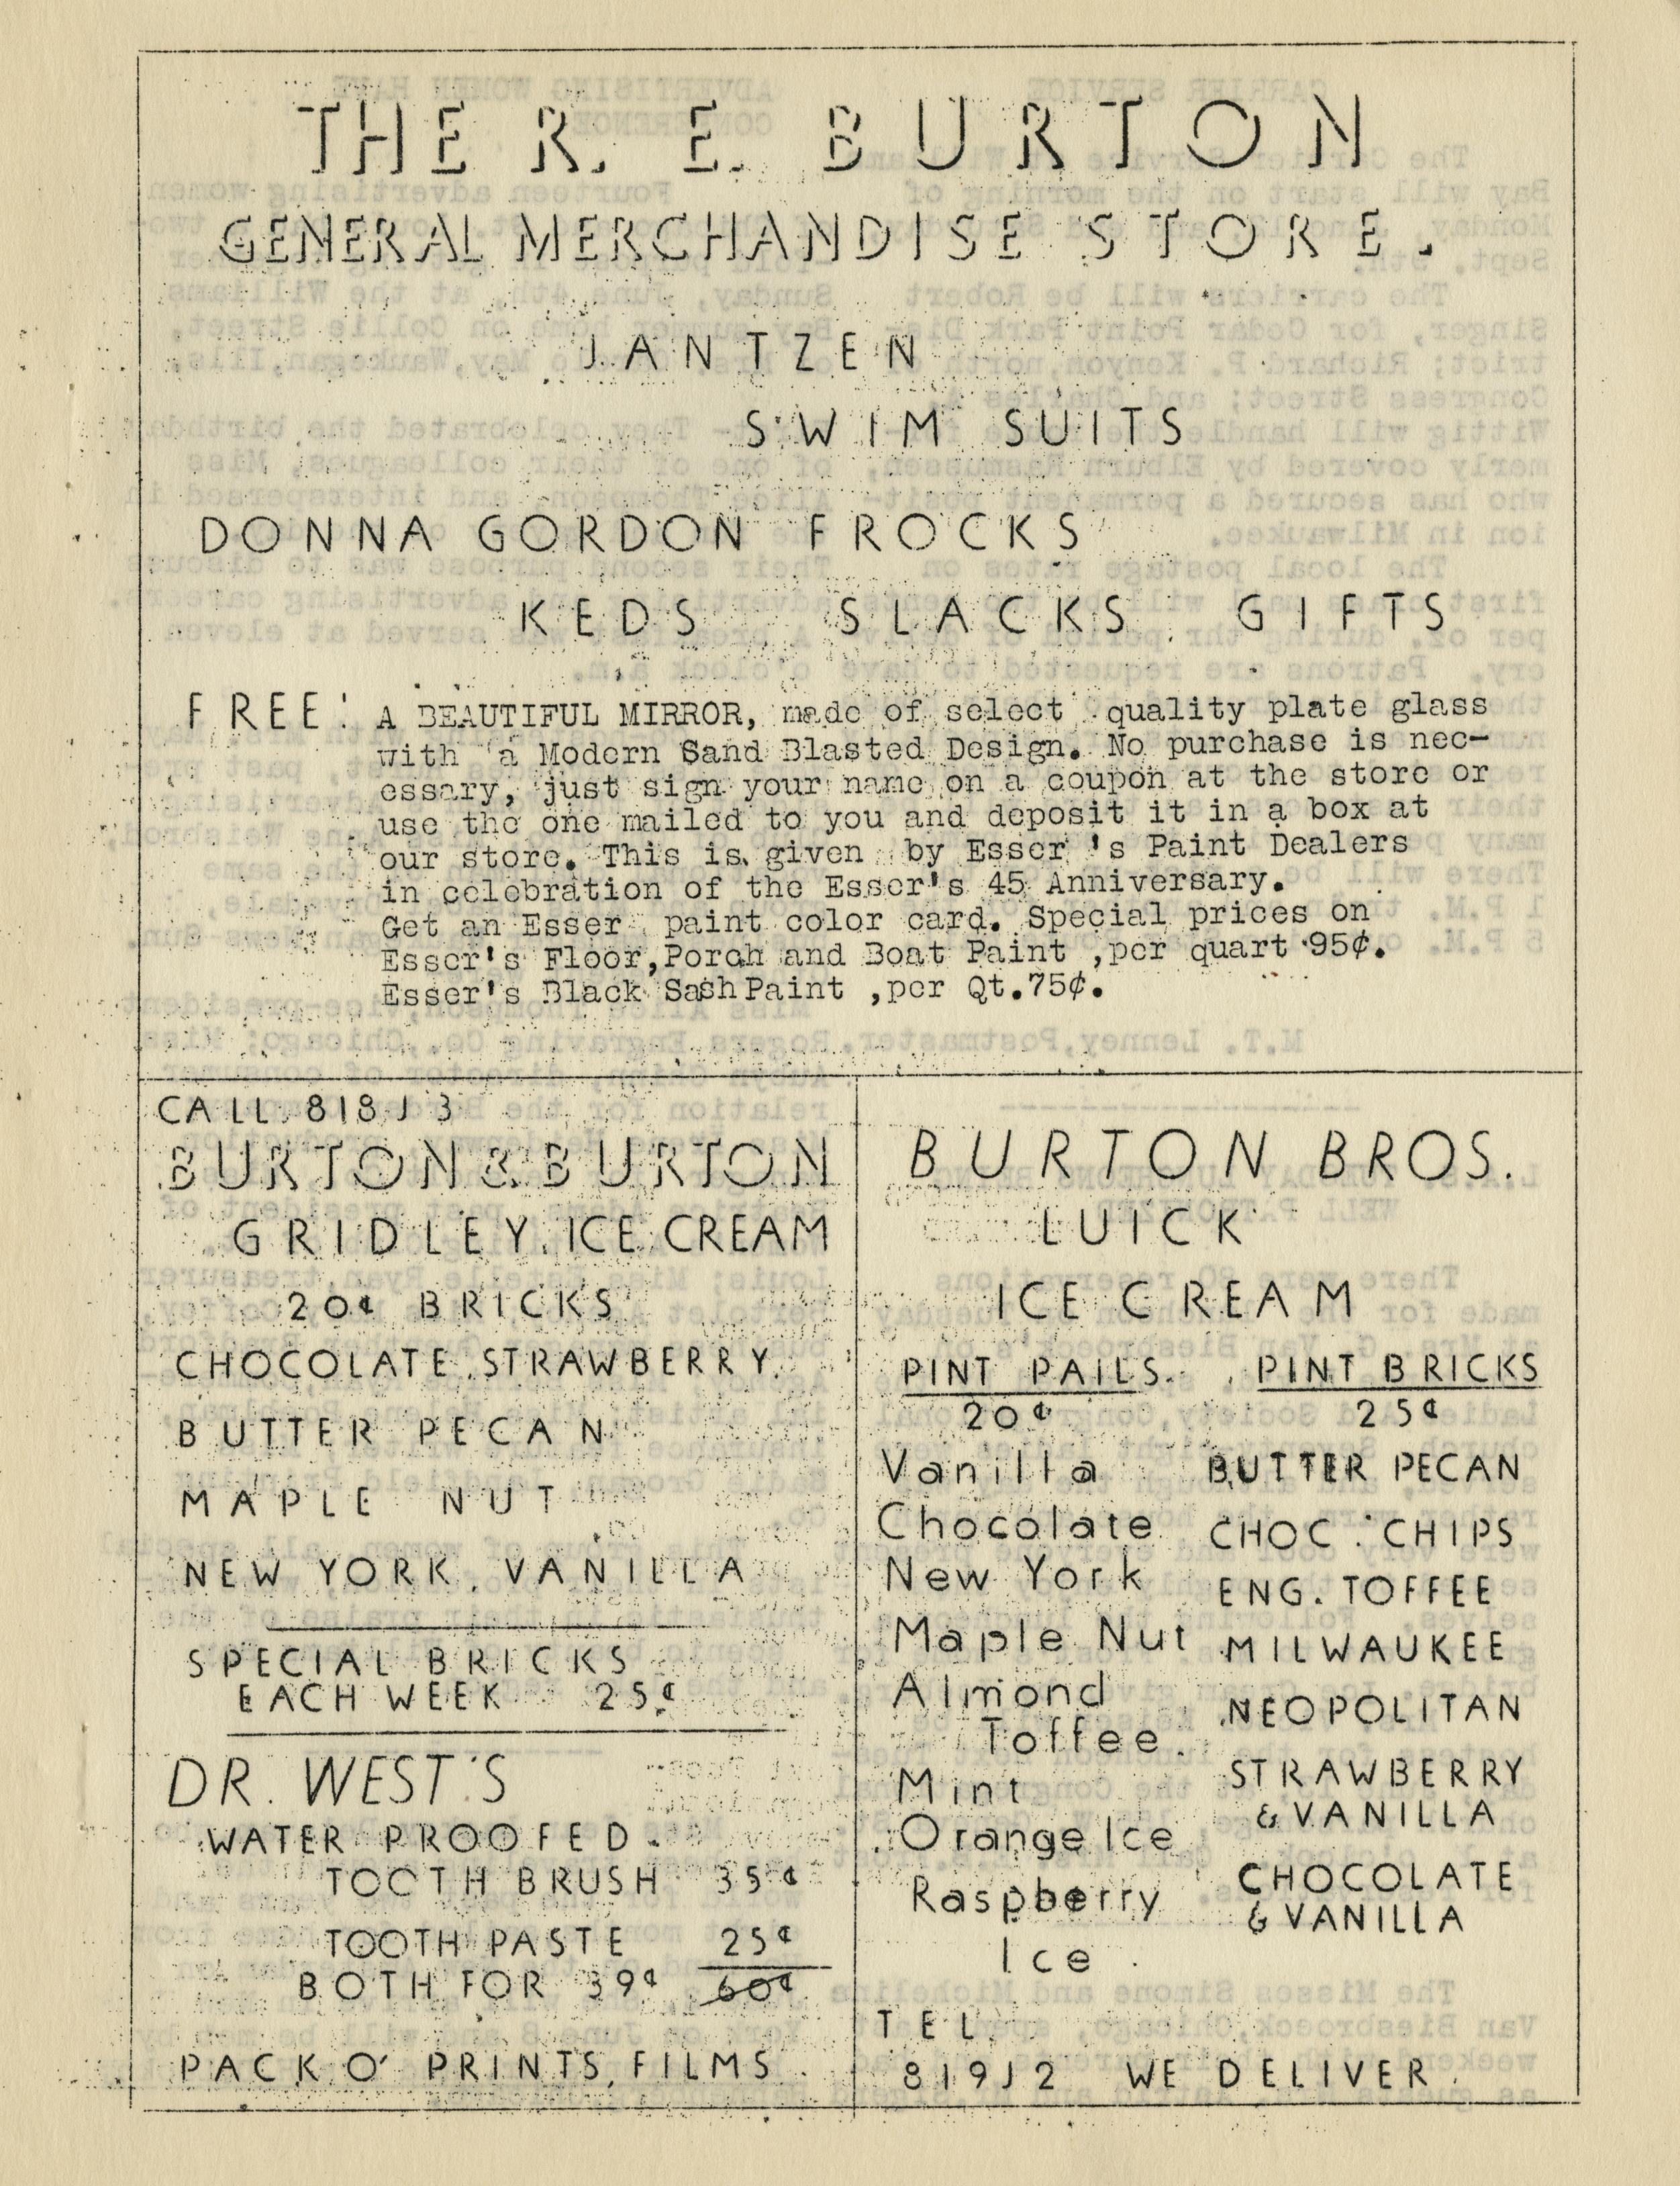 THE R. E. BURTON
GENERAL MERCHANDISE STORE.
JANTZEN
SWIM SUITS
DONNA GORDON FROCKS
KEDS SLACKS GIFTS
FREE: A BEAUTIFUL MIRROR, made of select quality plate glass
with a Modern Sand Blasted Design. No purchase is nec-
essary, just sign your name on a coupon at the store or
use the one mailed to you and deposit it in a box at
our store. This is given by Esser 's Paint Dealers
in celebration of the Esser's 45 Anniversary.
Get an Esser paint color card. Special prices on
Esser's Floor, Porch and Boat Paint ,per quart 95¢.
Esser's Black Sash Paint ,per Qt.75¢.
CALL 818J3
BURTON & BURTON
GRIDLEY ICE CREAM
20¢ BRICKS
CHOCOLATE STRAWBERRY
BUTTER PECAN
MAPLE NUT
NEW YORK VANILLA
SPECIAL BRICKS
EACH WEEK 25¢
DR. WEST'S
WATER PROOFED
TOOTH BRUSH 35¢
TOOTH PASTE 25¢
BOTH FOR 39¢ 60¢
PACK O' PRINTS, FILMS
BURTON BROS.
LUICK
ICE CREAM
PINT PAILS
20¢
Vanilla
Chocolate
New York
Maple Nut
Almond
Toffee
Mint
Orange Ice
Raspberry
Ice
PINT BRICKS
25¢
BUTTER PECAN
CHOC. CHIPS
ENG. TOFFEE
MILWAUKEE
NEOPOLITAN
STRAWBERRY
& VANILLA
CHOCOLATE
& VANILLA
TEL.
819J2 WE DELIVER